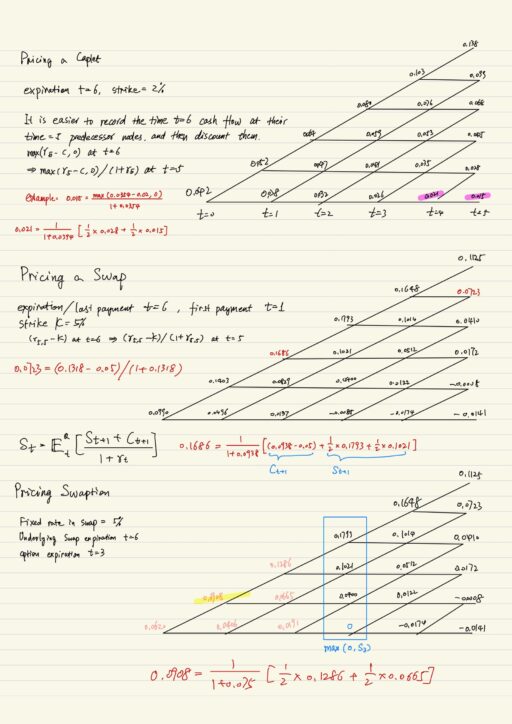 Pricing a Caplet
expiration t=6, strike = 2%
It is easier to record the time t=6 cash flow at their
time=5 predecessor nodes, and then discount them.
max(r₅-C, 0) at t=6
⇒ max(r₅-C, 0)/(1+r₅) at t=5
Example: 0.015 = max(0.0354-0.02, 0) / 1+0.0354
0.021 = 1/1+0.0394 [1/2 × 0.028 + 1/2 × 0.015]
0.138
0.103 0.099
0.080 0.076 0.068
0.064 0.059 0.053 0.045
0.052 0.047 0.041 0.035 0.028
0.042 0.038 0.032 0.026 0.021 0.015
t=0 t=1 t=2 t=3 t=4 t=5
Pricing a Swap
expiration/last payment t=6, first payment t=1
Strike K=5%
(r₅,₅-K) at t=6 ⇒ (r₅,₅-K)/(1+r₅,₅) at t=5
0.0723 = (0.1318-0.05)/(1+0.1318)
0.1125
0.1648 0.0723
0.1793 0.1014 0.0410
0.1686 0.1021 0.0512 0.0172
0.1403 0.0829 0.0400 0.0122 -0.0008
0.0990 0.0496 0.0137 -0.0085 -0.0174 -0.0141
Sₜ = Eₜ^Q [Sₜ₊₁ + Cₜ₊₁ / 1+rₜ]
0.1686 = 1/1+0.0938 [(0.0938-0.05) + 1/2 × 0.1793 + 1/2 × 0.1021]
Cₜ₊₁ Sₜ₊₁
Pricing Swaption
Fixed rate in swap = 5%
Underlying Swap expiration t=6
option expiration t=3
0.1125
0.1648 0.0723
0.1793 0.1014 0.0410
0.1286 0.1021 0.0512 0.0172
0.0908 0.0665 0.0400 0.0122 -0.0008
0.0620 0.0406 0.0191 0 -0.0174 -0.0141
max(0, S₃)
0.0908 = 1/1+0.075 [1/2 × 0.1286 + 1/2 × 0.0665]